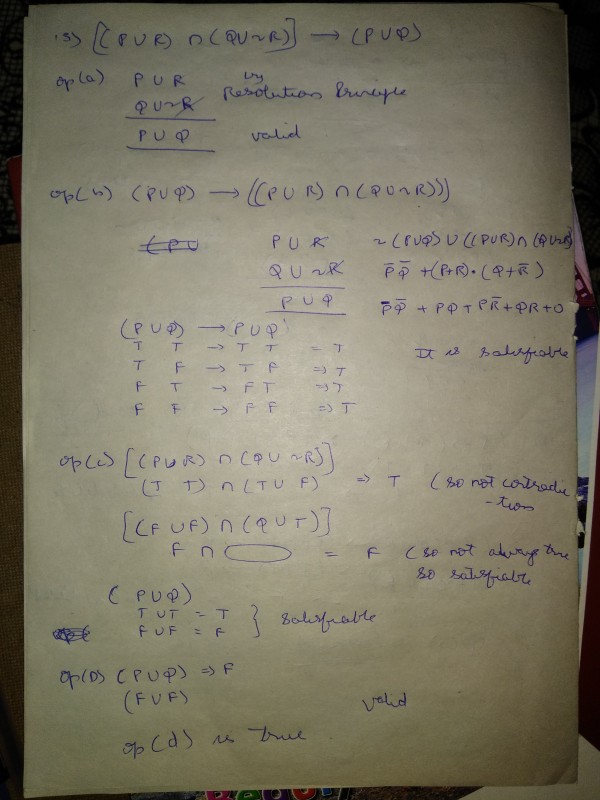 15) [(P ∪ R) ∩ (Q ∪ ~R)] → (P ∪ Q)
op(a) P ∪ R by Resolution Principle
Q ∪ ~R
P ∪ Q valid
op(b) (P ∪ Q) → ((P ∪ R) ∩ (Q ∪ ~R)))
P ∪ R ~(P∪Q) ∪ ((P∪R) ∩ (Q∪~R))
Q ∪ ~R P̄Q̄ + (P+R)·(Q+R̄)
P ∪ Q P̄Q̄ + PQ + PR̄ + QR + 0
(P ∪ Q) → (P ∪ Q)
T T → T T = T It is satisfiable
T F → T F ⇒ T
F T → F T ⇒ T
F F → F F ⇒ T
op(c) [(P ∪ R) ∩ (Q ∪ ~R)]
(T T) ∩ (T ∪ F) ⇒ T (so not contradic
-tion
[(F ∪ F) ∩ (Q ∪ T)]
F ∩ = F (so not always true
so satisfiable
(P ∪ Q)
T ∪ T = T
F ∪ F = F } satisfiable
op(D) (P ∪ Q) ⇒ F
(F ∪ F) valid
op(d) is true